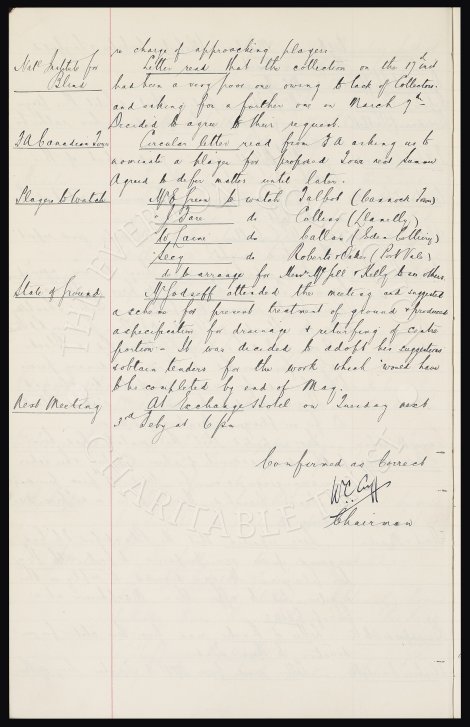 in charge of approaching players.
Nat. Institute for Blind
Letter read that the collection on the 17th inst
had been a very poor one owing to lack of Collectors
and asking for a further one on March 7th
Decided to agree to their request.
F A Canadian Tour
Circular letter read from F A asking us to
nominate a player for proposed Tour next Summer
Agreed to defer matter until later.
Players to Watch
Mr E Green to watch Talbot (Cannock Town)
" J Fare do Collins (Llanelly)
" W Laine do Callan (Eden Colliery)
" do Roberts (Port Vale)
do to arrange for & Kelly to see others
State of Ground
attended the meeting and suggested
a scheme for present treatment of ground & produced
a specification for drainage & returfing of centre
portion - It was decided to adopt his suggestions
& obtain tenders for the work which would have
to be completed by end of May.
Next Meeting
At Exchange Hotel on Tuesday next
3rd Feby at 6 pm
Confirmed as Correct
W C Cuff
Chairman
THE EVERTON
CHARITABLE